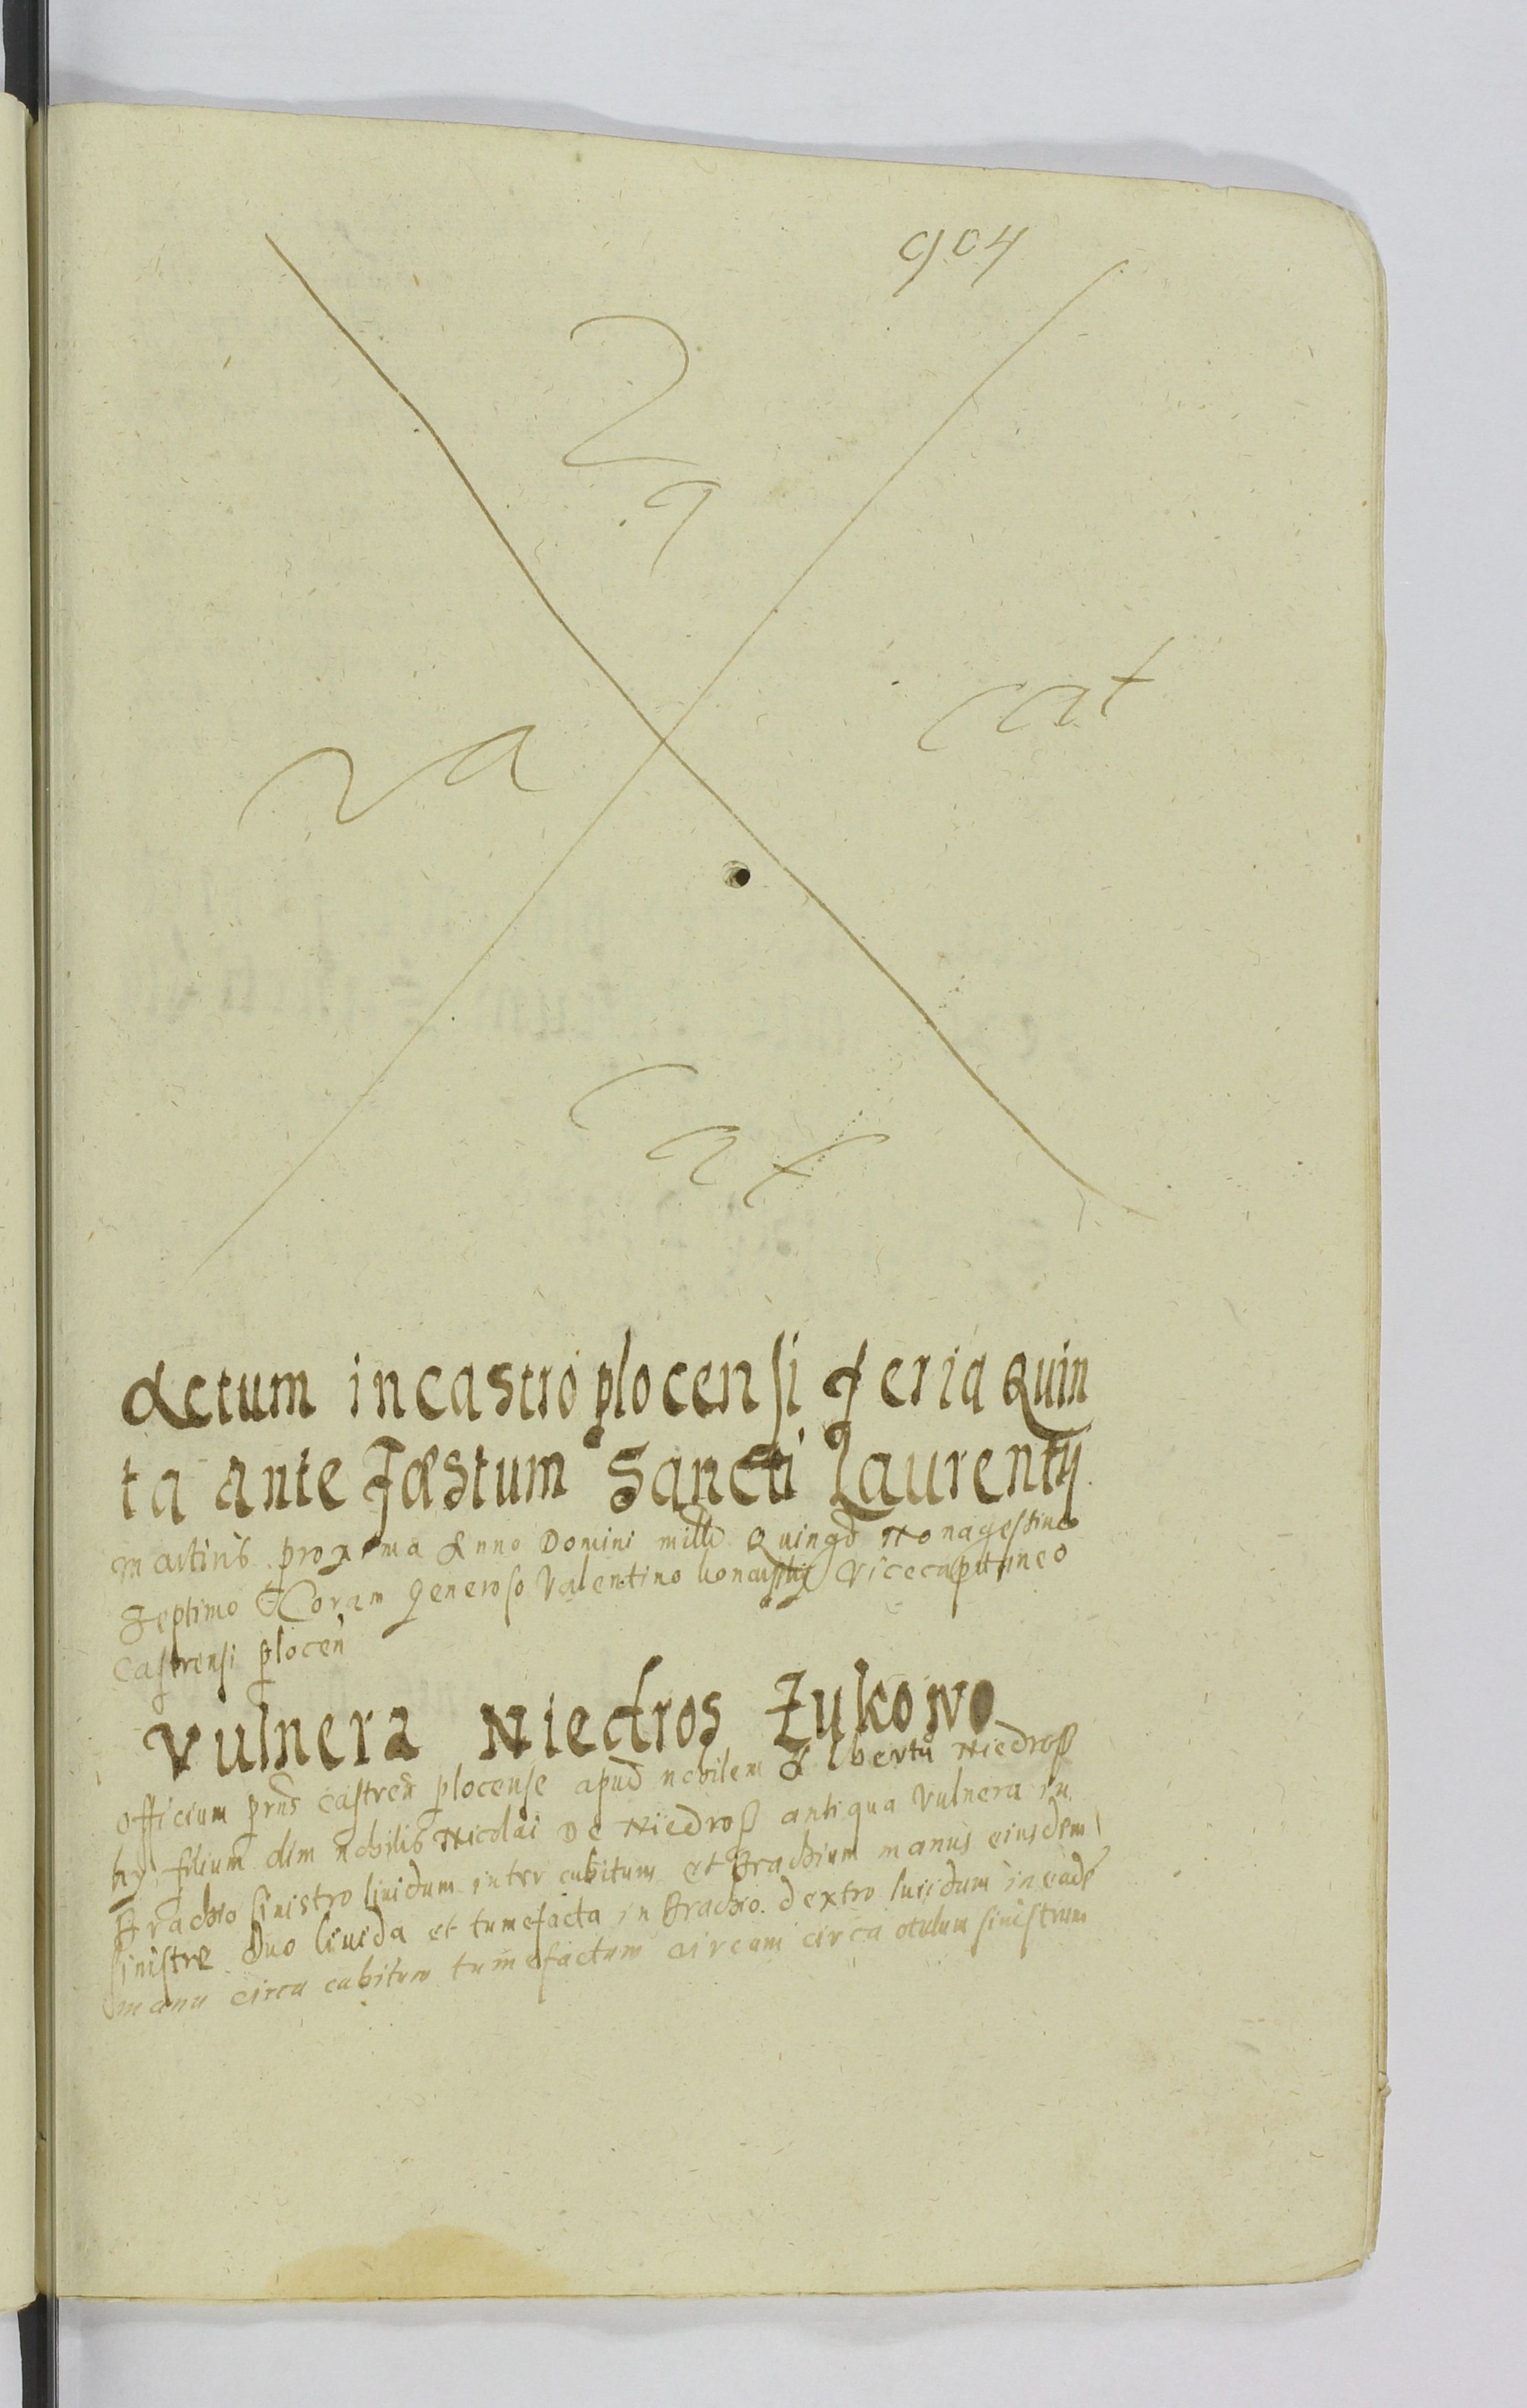 904
Va
va cat
cat
Actum in castro plocensi Feria Quin
ta ante Fæstum Sancti Laurentij
Martiris proxima Anno Domini mille Quingd Nonagesimo
Septimo Coram Generoso Valentino Vicecapitaneo
Castrensi plocen
Vulnera Niedros Żukowo
Officium prns castren plocense apud nobilem Albertũ Niedroß
ky filium olim nobilis Nicolai De Niedroß antiqua Vulnera in
Brachio sinistro liuidum inter cubitum et Brachium manus eiusdem
sinistre Duo liuida et tumefacta in Brachio dextro liuidum in eadē
manu circa cubitum tumefactum circum circa otulum sinistrum